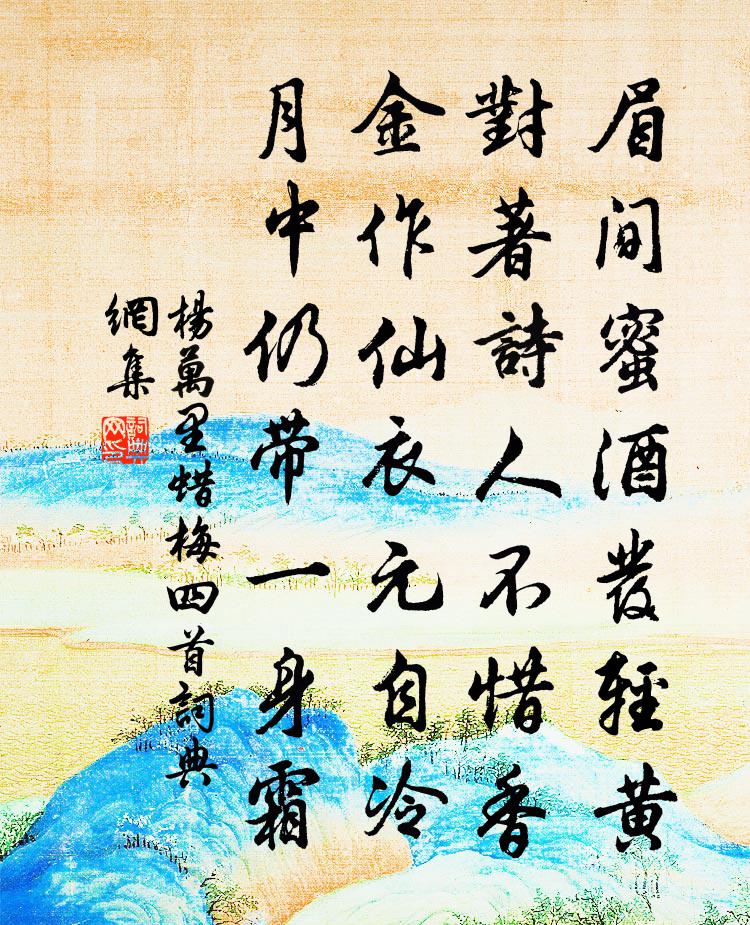 眉間蜜酒發輕黃
對著詩人不惜香
金作仙衣元自冷
月中仍帶一身霜
楊萬里蜡梅四首詞典
網集